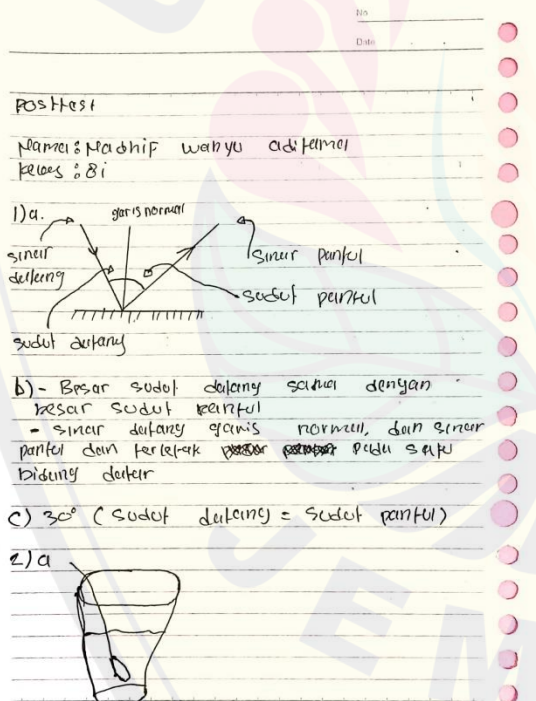 No
Date
Posttest
Nama : Nadhif wahyu aditama
kelas : 8i
1) a. garis normal
sinar datang
sinar pantul
sudut pantul
sudut datang
b) - Besar sudut datang sama dengan
besar sudut pantul
- sinar datang garis normal, dan sinar
pantul dan terletak pada satu
bidang datar
c) 30° (sudut datang = sudut pantul)
2) a
JEM